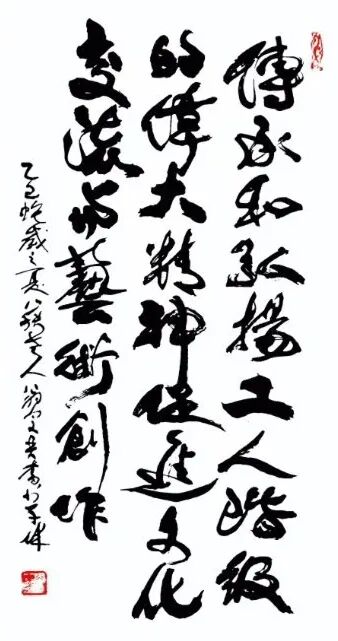 傳承和弘揚工人階級
的偉大精神促進文化
交流与藝術創作
乙巳蛇歲之夏八老人翁文書